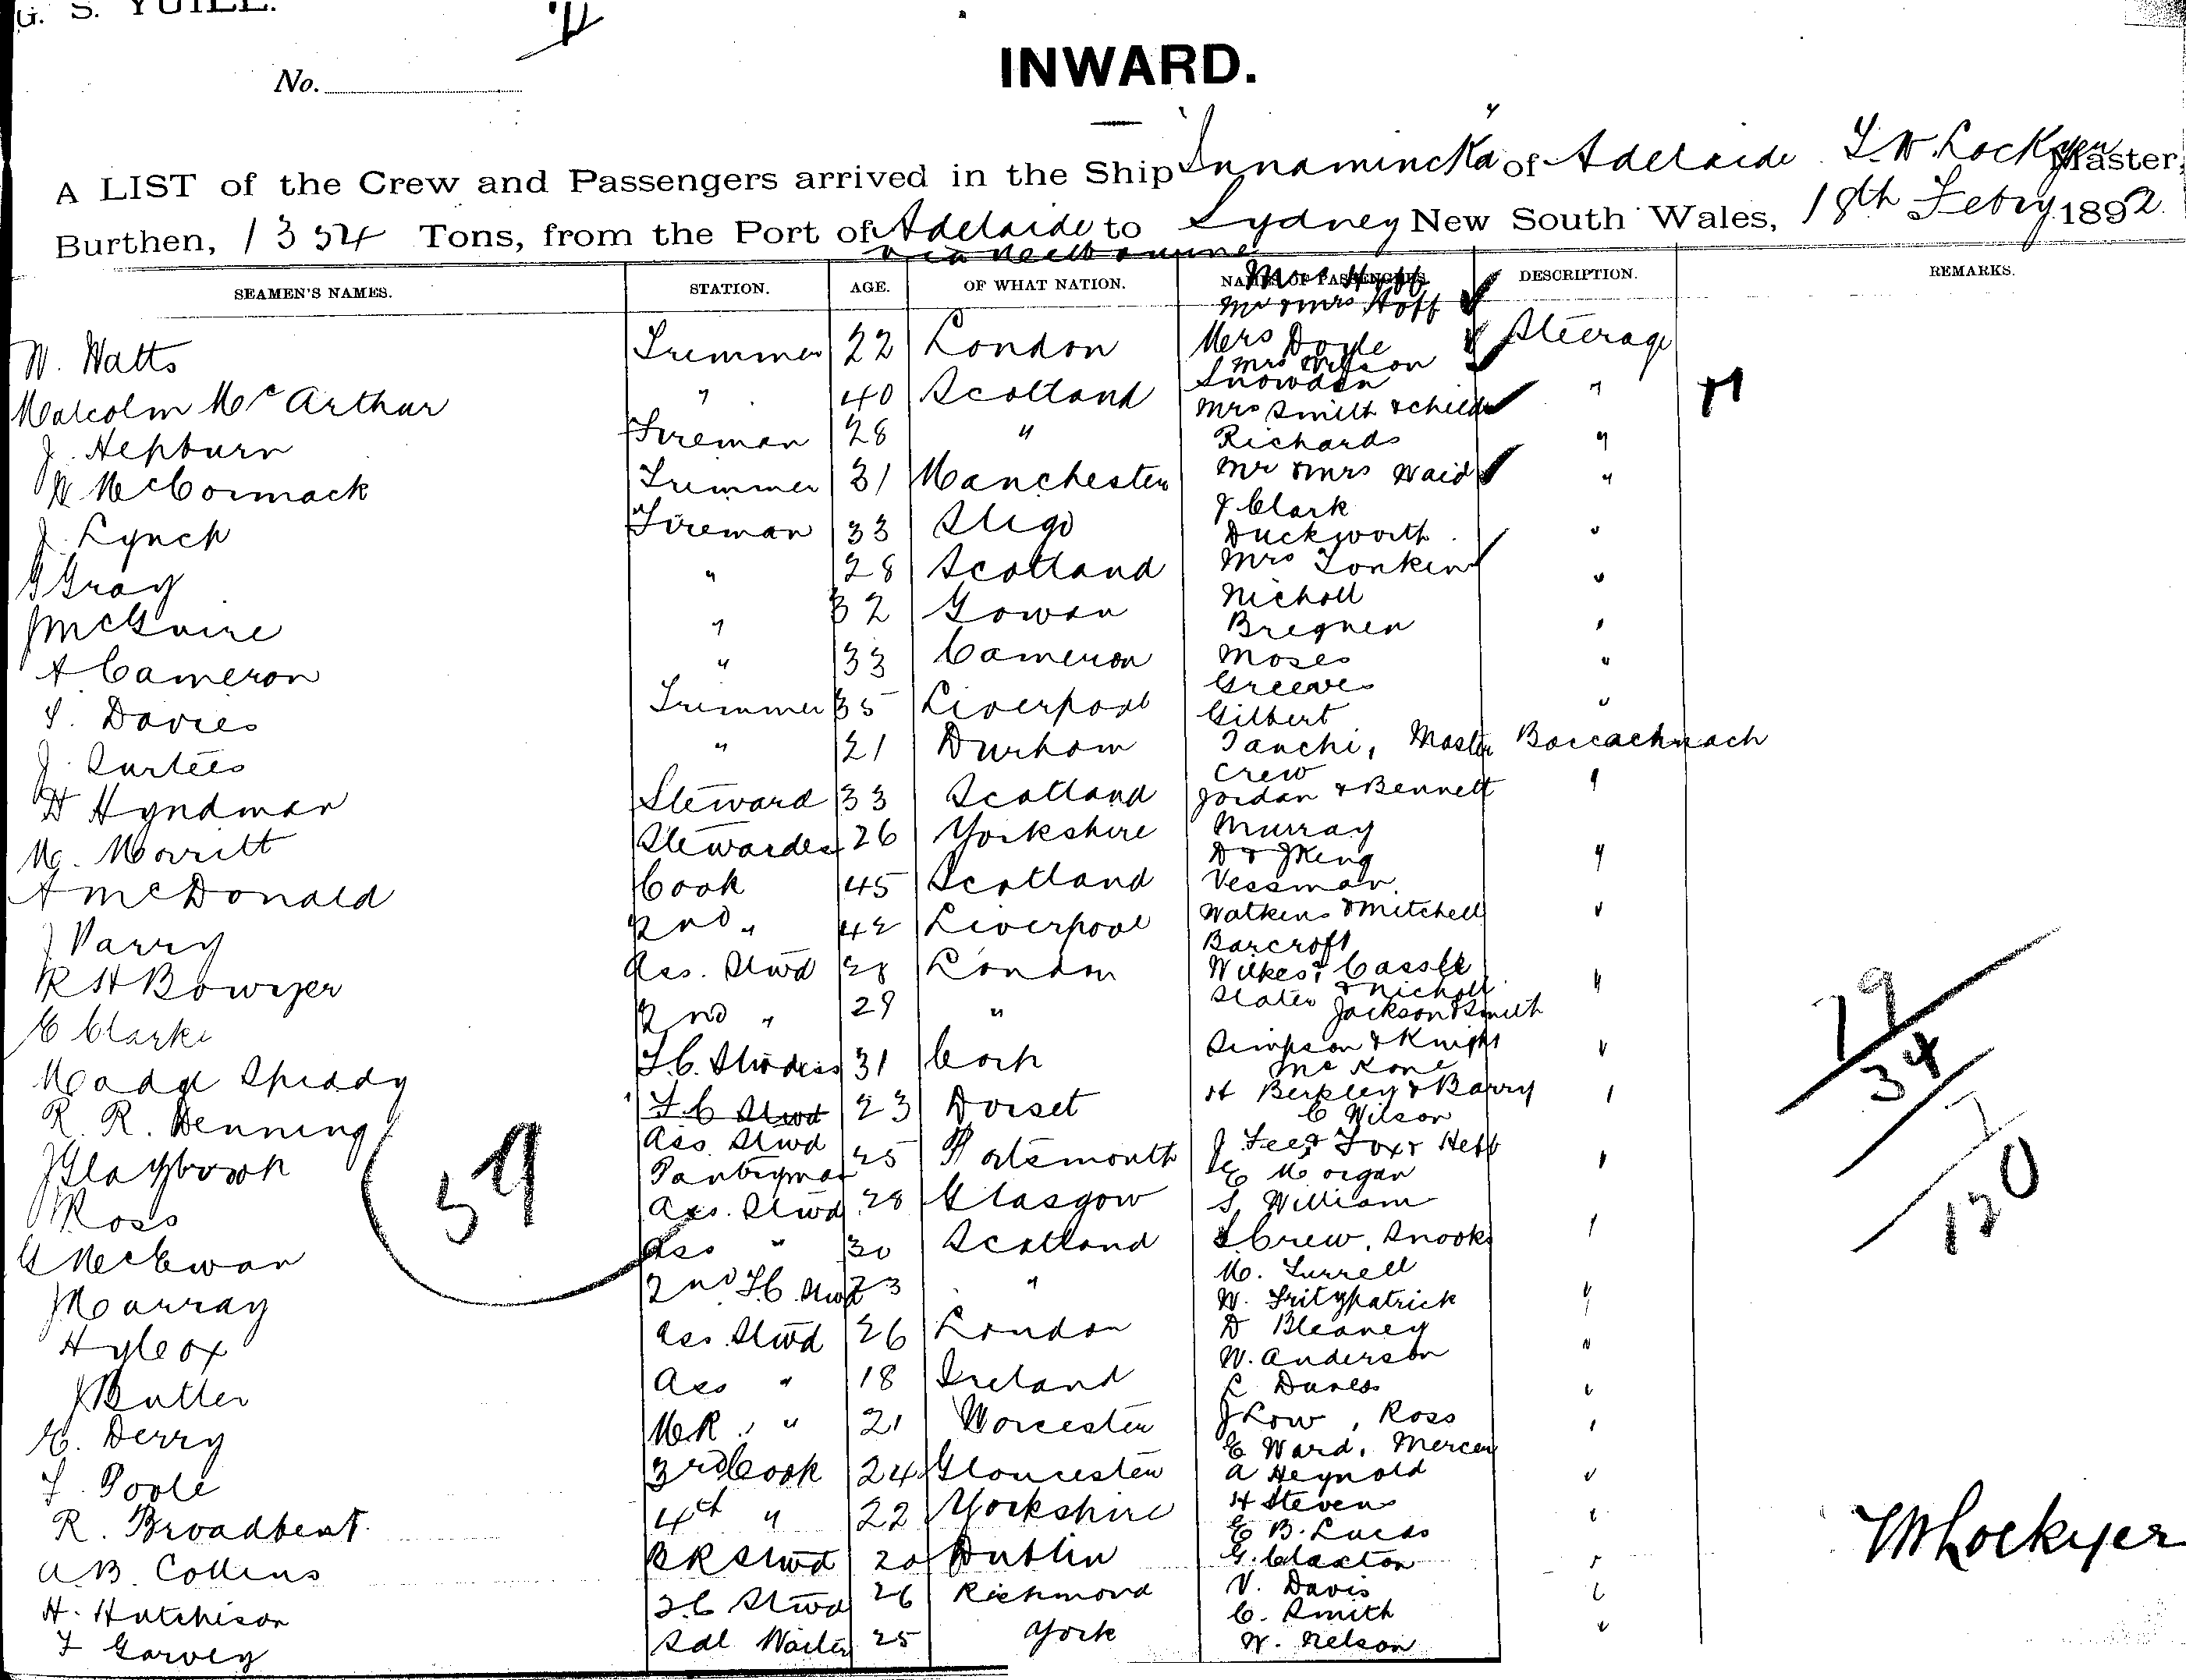 G. S. YUILL.
No.
INWARD.
A LIST of the Crew and Passengers arrived in the Ship "Innamincka" of Adelaide T. W. Lockyer Master,
Burthen, 1354 Tons, from the Port of Adelaide to Sydney New South Wales, 18th Febry 1892
via Melbourne
SEAMEN'S NAMES. STATION. AGE. OF WHAT NATION. NAMES OF PASSENGERS DESCRIPTION. REMARKS.
Mr & Mrs Hoff
W. Watts Trimmer 22 London Mers Doyle Steerage
Mrs Wilson
Snowden
Malcolm McArthur " 40 Scotland Mrs Smith & child "
J. Hepburn Fireman 28 " Richards "
W McCormack Trimmer 31 Manchester Mr & Mrs Waid "
J Clark
J. Lynch Fireman 33 Sligo Duckworth "
G Gray " 28 Scotland Mrs Tonkin "
Nicholl
J McGuire " 32 Gowan Bregnen "
A Cameron " 33 Cameron Moses "
Greeves
T. Davies Trimmer 35 Liverpool Gilbert "
J. Surtees " 21 Durham Tanchi, Master
Crew
D Hyndman Steward 33 Scotland Jordan & Bennett "
M. Morritt Stewardess 26 Yorkshire Murray
D & J King "
A McDonald Cook 45 Scotland Vessman
J Parry 2nd " 42 Liverpool Watkins & Mitchell "
Barcroft
R H Bowyer Ass. Stwd 28 London Wilkes & Cassell "
Slater & Nicholl
E Clarke 2nd " 29 " Jackson & Smith
Simpson & Knight "
Spiddy F.C. Stwdess 31 Cork McKone
R. R. Denning F C Stwd 23 Dorset H Berkley & Barry "
Ass Stwd C Wilson
J Claybrook Pantryman 25 Portsmouth J Lee & Fox & Hebb "
E Morgan
J Ross Ass. Stwd 28 Glasgow S William
G McEwan Ass " 30 Scotland S Crew, Snooks "
M. Turrell
J Murray 2nd F C Stwd 23 " W. Fritzpatrick "
Hylcox Ass Stwd 26 London D Bleaney
W. Anderson "
J Butler Ass " 18 Ireland "
E. Derry M R. " 21 Worcester J Low, Ross "
E Ward, Mercer
F. Poole 3rd Cook 24 Gloucester A Heynold "
R. Broadbent 4th " 22 Yorkshire H Stevens "
E B. Lucas
A. B. Collins B R Stwd 20 Dublin G. Claxton "
H. Hutchison 2 C Stwd 26 Richmond V. Davis "
C. Smith
F Garvey Sal Waiter 25 York W. Nelson "
59
79
34
7
120
T W Lockyer